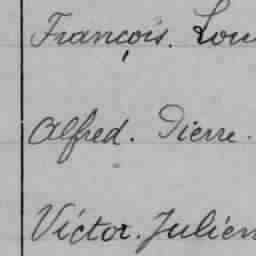 François. Lou
Alfred. Pierre.
Victor. Julien